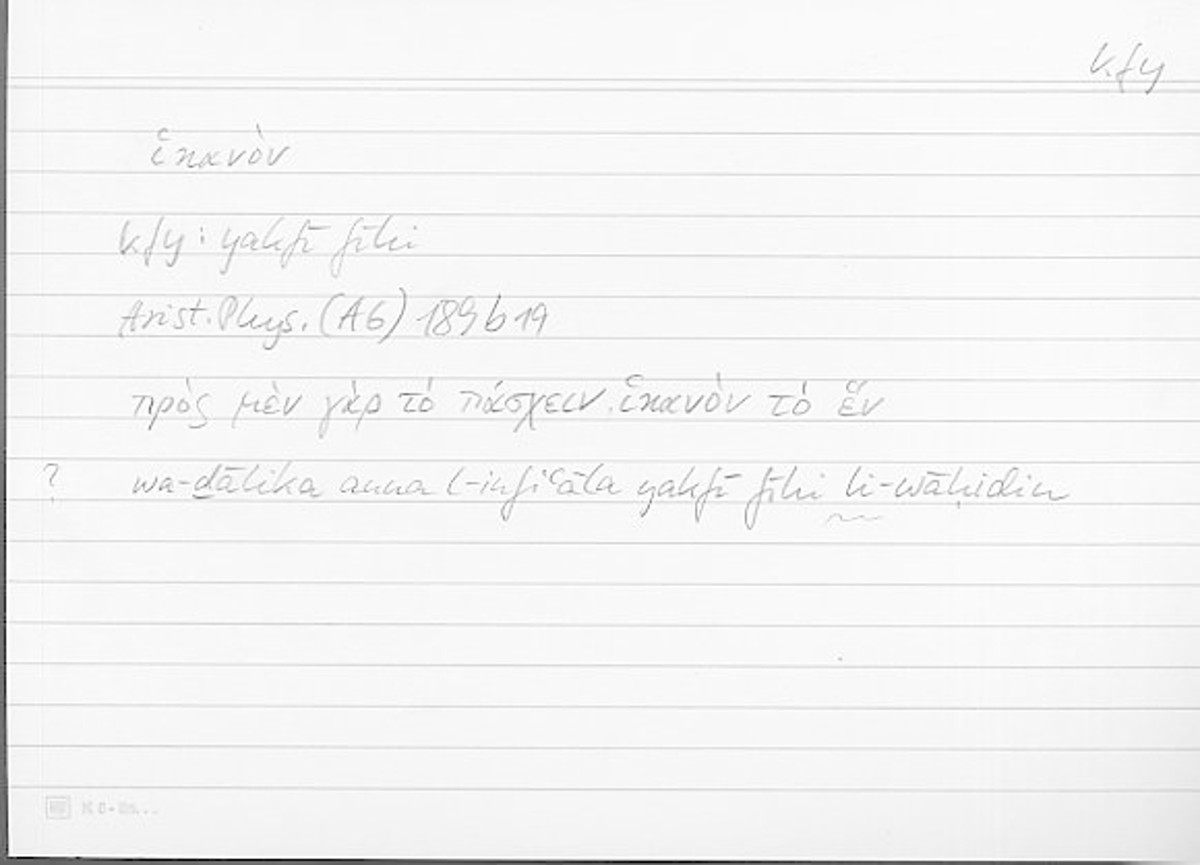 kfy
ἱκανὸν
kfy : yakfī fīhi
Arist. Phys. (A6) 189b19
πρὸς μὲν γὰρ τὸ πάσχειν ἱκανὸν τὸ ἕν
? wa-ḏālika anna l-infiʿāla yakfī fīhi li-wāḥidin